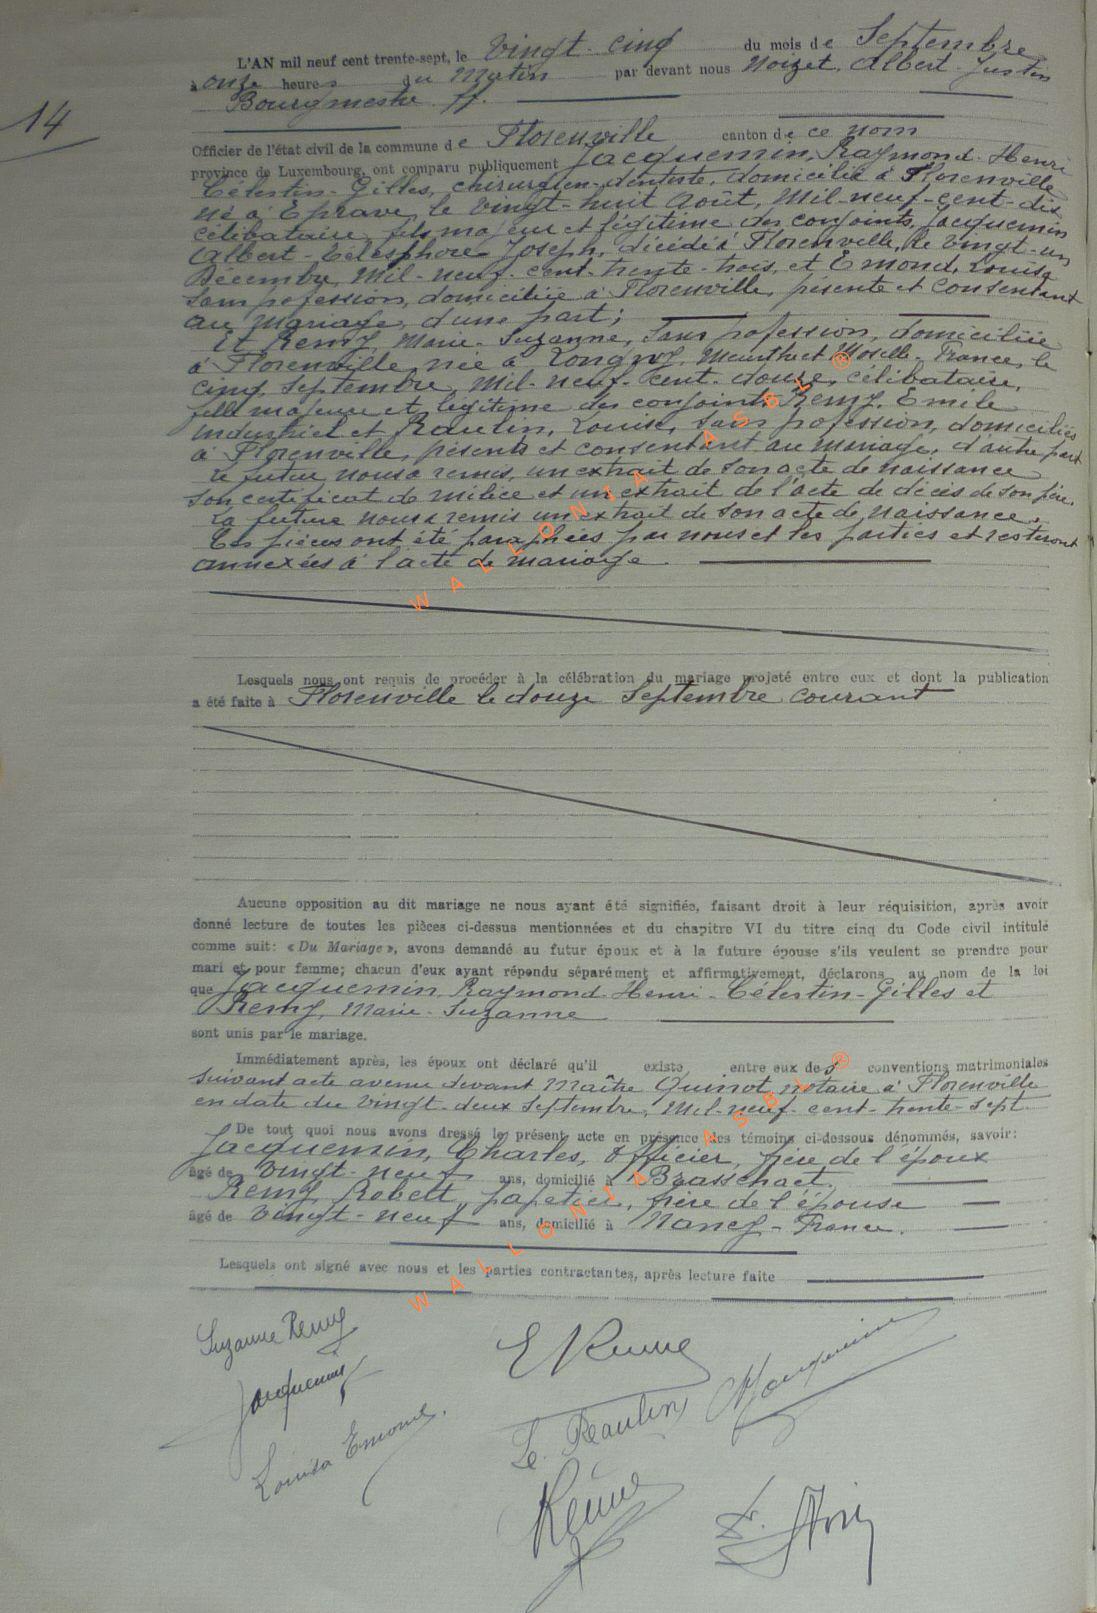 L'AN mil neuf cent trente-sept, le Vingt-cinq du mois de Septembre
à onze heures du Matin par devant nous Noizet, Albert-Justin
Bourgmestre ff.
14
Officier de l'état civil de la commune de Florenville canton de ce nom
province de Luxembourg, ont comparu publiquement Jacquemin, Raymond-Henri
Célestin-Gilles, chirurgien-dentiste, domicilié à Florenville
né à Eprave, le Vingt-huit Août, Mil-neuf-cent-dix
célibataire, fils majeur et légitime des conjoints Jacquemin
Albert-Télesphore Joseph, décédé à Florenville, le Vingt-un
Décembre, Mil-neuf-cent-trente-trois, et Emond, Louise
sans pofession, domiciliée à Florenville, présente et consentant
au mariage, d'une part;
Et Remy, Marie-Suzanne, sans pofession, domiciliée
à Florenville née à Longwy, Meurthe et Moselle-France, le
cinq Septembre, Mil-neuf-cent-douze, célibataire,
fille majeure et légitime des conjoints Remy, Emile
industriel et Raulin, Louise, sans pofession, domiciliés
à Florenville, présents et consentant au mariage, d'autre part
Le futur nous a remis, un extrait de son acte de naissance
son certificat de milice et un extrait de l'acte de décès de son père.
La future nous a remis un extrait de son acte de naissance.
Ces pièces ont été paraphées par nous et les parties et resteront
annexées à l'acte de mariage.
WALLONIA ASBL ®
Lesquels nous ont requis de procéder à la célébration du mariage projeté entre eux et dont la publication
a été faite à Florenville le douze Septembre courant
Aucune opposition au dit mariage ne nous ayant été signifiée, faisant droit à leur réquisition, après avoir
donné lecture de toutes les pièces ci-dessus mentionnées et du chapitre VI du titre cinq du Code civil intitulé
comme suit: « Du Mariage », avons demandé au futur époux et à la future épouse s'ils veulent se prendre pour
mari et pour femme; chacun d'eux ayant répondu séparément et affirmativement, déclarons au nom de la loi
que Jacquemin, Raymond-Henri-Célestin-Gilles et
Remy, Marie-Suzanne
sont unis par le mariage.
Immédiatement après, les époux ont déclaré qu'il existe entre eux des conventions matrimoniales
suivant acte avenu devant Maître Quinot, notaire à Florenville
en date du Vingt-deux Septembre, Mil-neuf-cent-trente-sept
De tout quoi nous avons dressé le présent acte en présence des témoins ci-dessous dénommés, savoir:
Jacquemin, Charles, Officier, frère de l'époux
âgé de Vingt-neuf ans, domicilié à Brasschaet.
Remy, Robert, papetier, frère de l'épouse
âgé de Vingt-neuf ans, domicilié à Nancy-France.
Lesquels ont signé avec nous et les parties contractantes, après lecture faite
WALLONIA ASBL ®
Suzanne Remy
E Remy
Jacquemin
Jacquemin
Le Raulin
Louisa Emond.
Remy